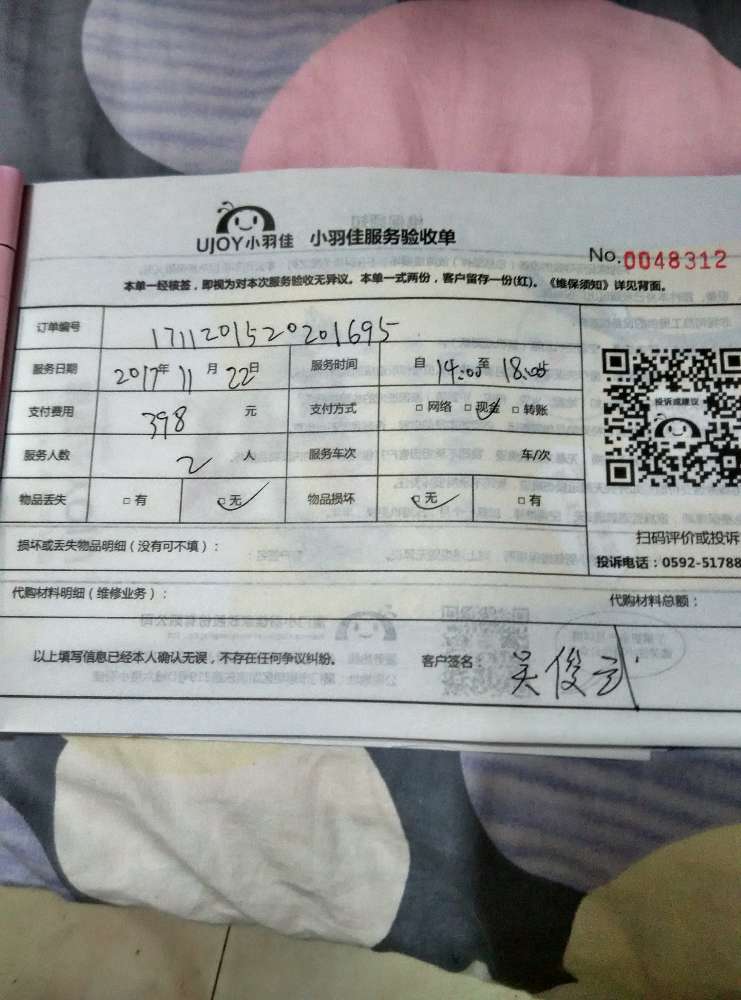 UJOY小羽佳 小羽佳服务验收单
No.0048312
本单一经核签，即视为对本次服务验收无异议。本单一式两份，客户留存一份(红)。《维保须知》详见背面。
订单编号 1711201520201695
服务日期 2017年 11 月 22日 服务时间 自 14:00 至 18:00止
支付费用 398 元 支付方式 □网络 □现金 □转账
投诉或建议
服务人数 2 人 服务车次 车/次
物品丢失 □有 □无 物品损坏 □无 □有
损坏或丢失物品明细（没有可不填）：
扫码评价或投诉
投诉电话：0592-51788
代购材料明细（维修业务）： 代购材料总额：
以上填写信息已经本人确认无误，不存在任何争议纠纷。 客户签名： 吴俊